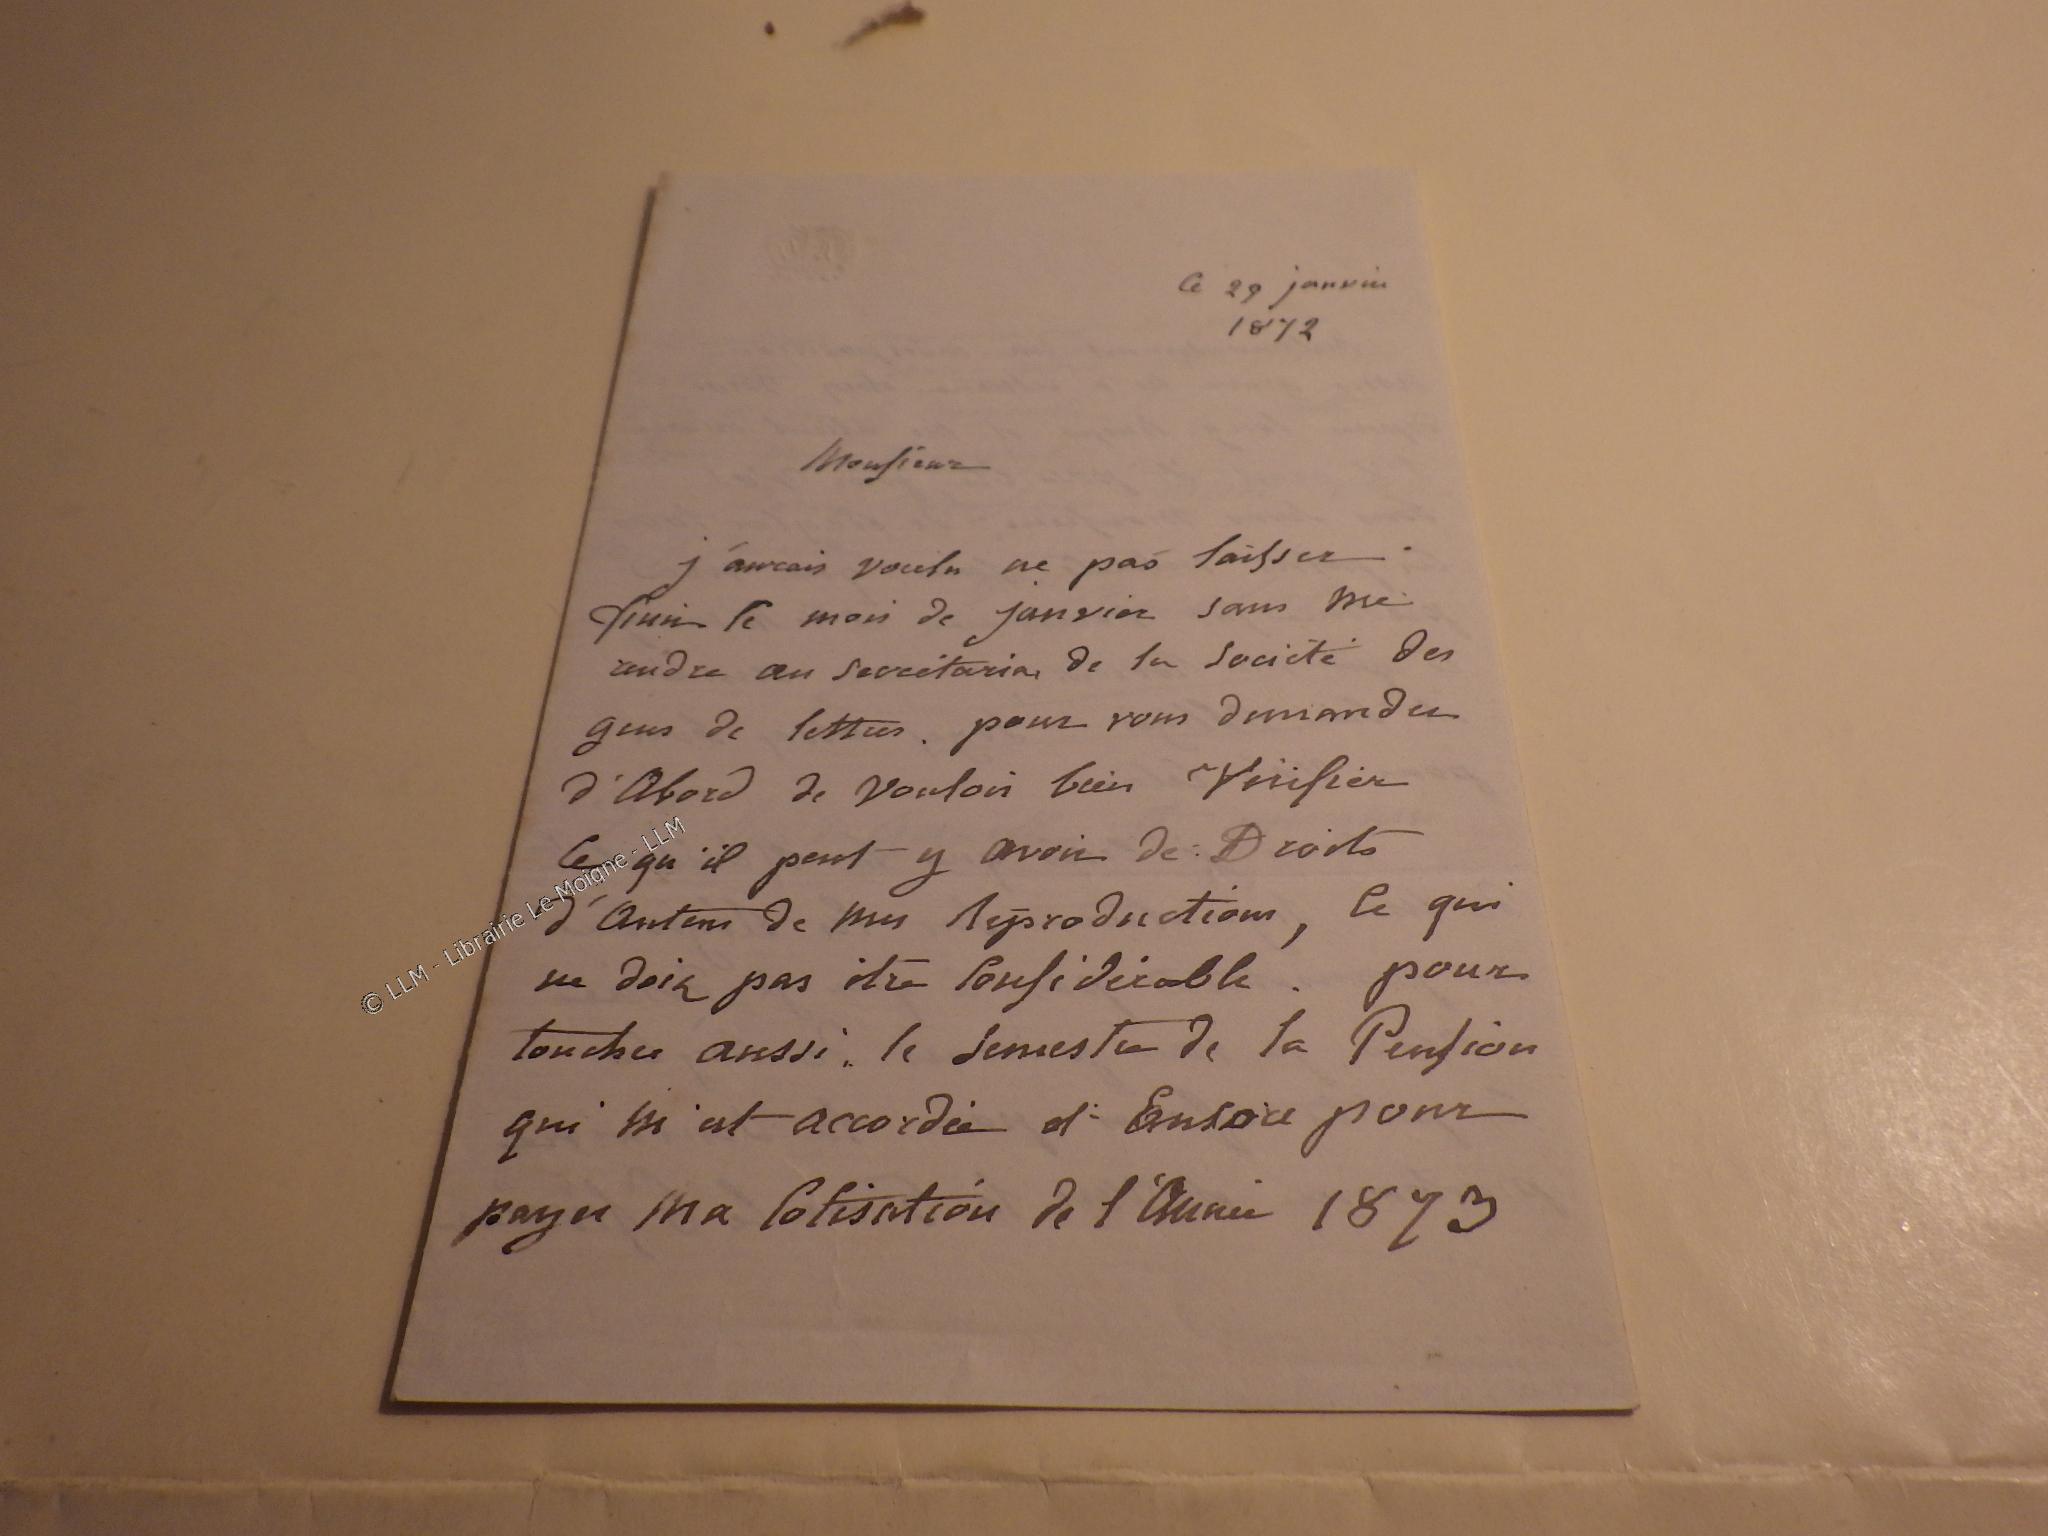 Ce 29 janvier
1872
Monsieur
j'aurais voulu ne pas laisser
finir le mois de janvier sans me
rendre au secrétariat de la société des
gens de lettres. pour vous demander
d'Abord de vouloir bien Vérifier
Ce qu'il peut y avoir de Droits
d'Auteur de mes Réproductions, Ce qui
ne doit pas être Considérable. pour
toucher aussi. le semestre de la Pension
qui m'est accordée et Ensore pour
payer ma Cotisation de l'Année 1873
© LLM - Librairie Le Moigne - LLM